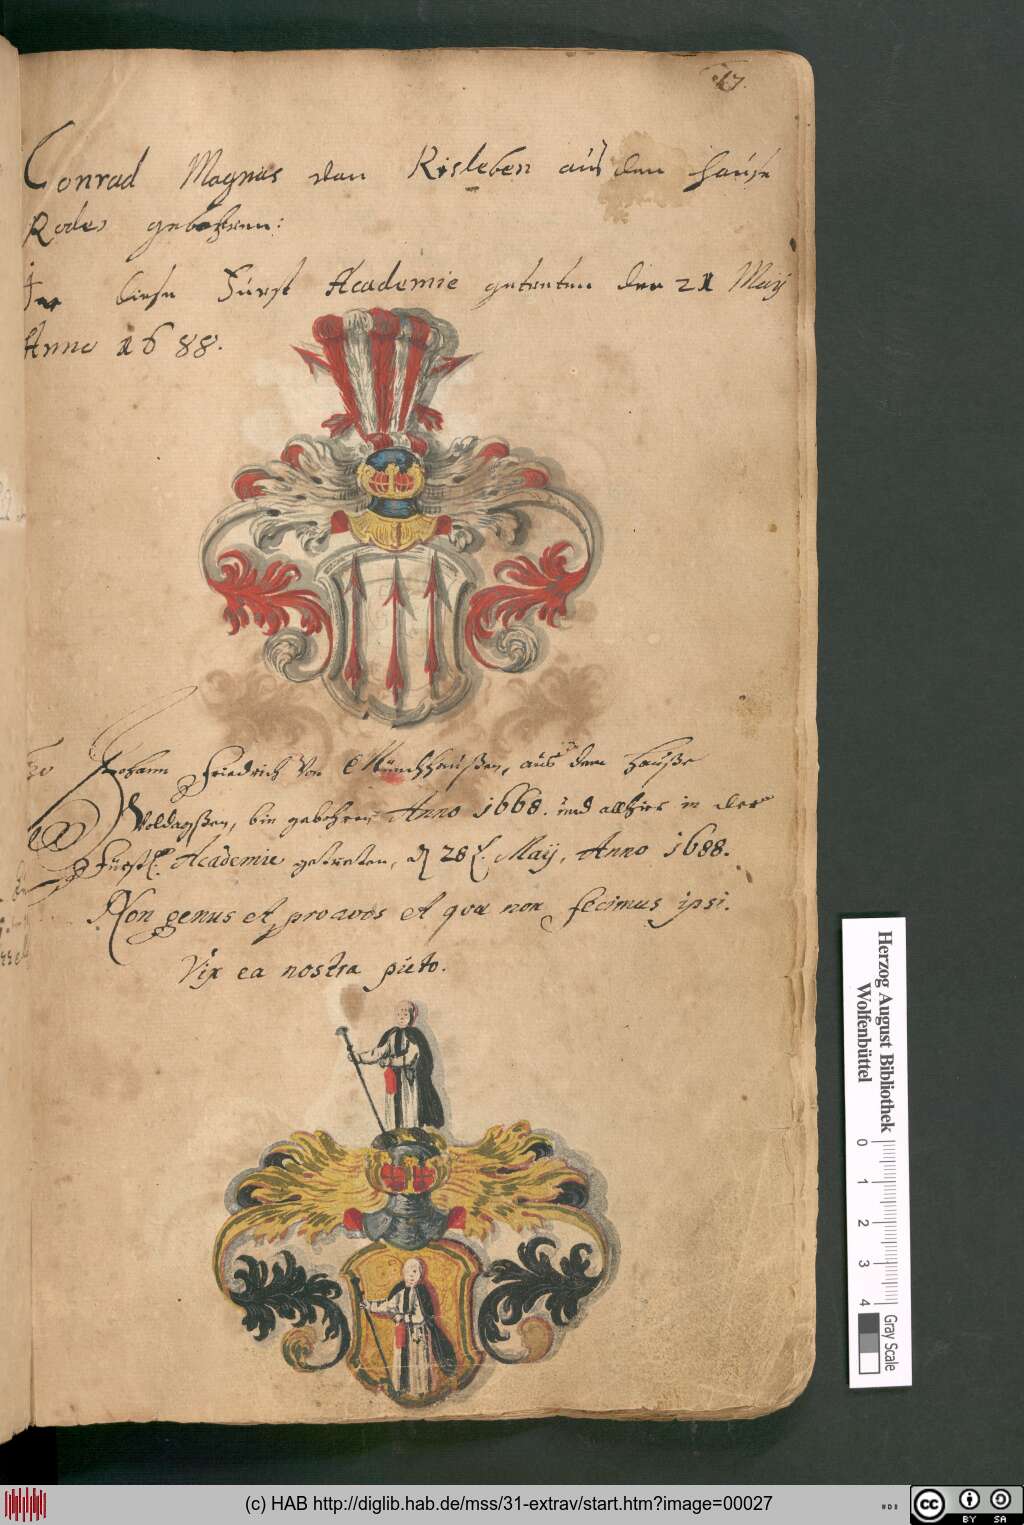 17.
Conrad Magnus von Risleben aus dem Hause
Rodes gebohren:
In diese Fürst Academie getreten den 21 Maij
Anno 1688.
Johann Friedrich Von Münchhaußen, aus dem Hauße
Voldagßen, bin gebohren Anno 1668. und allhier in der
Fürstl. Academie getreten, d 28t. Maij, Anno 1688.
Non genus et proavos et quæ non fecimus ipsi.
Vix ea nostra puto.
Herzog August Bibliothek
Wolfenbüttel
0 1 2 3 4
Gray Scale
(c) HAB http://diglib.hab.de/mss/31-extrav/start.htm?image=00027
cc BY SA